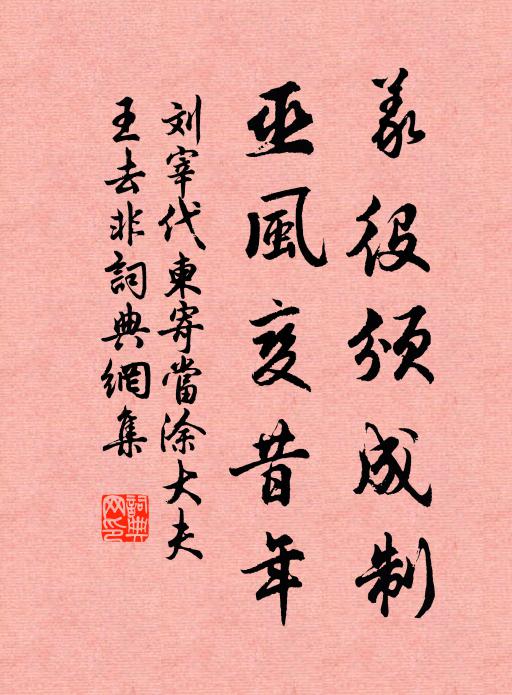 義役頒成制
巫風变昔年
刘宰代柬寄當涂大夫
王去非詞典網集
詞典
网印